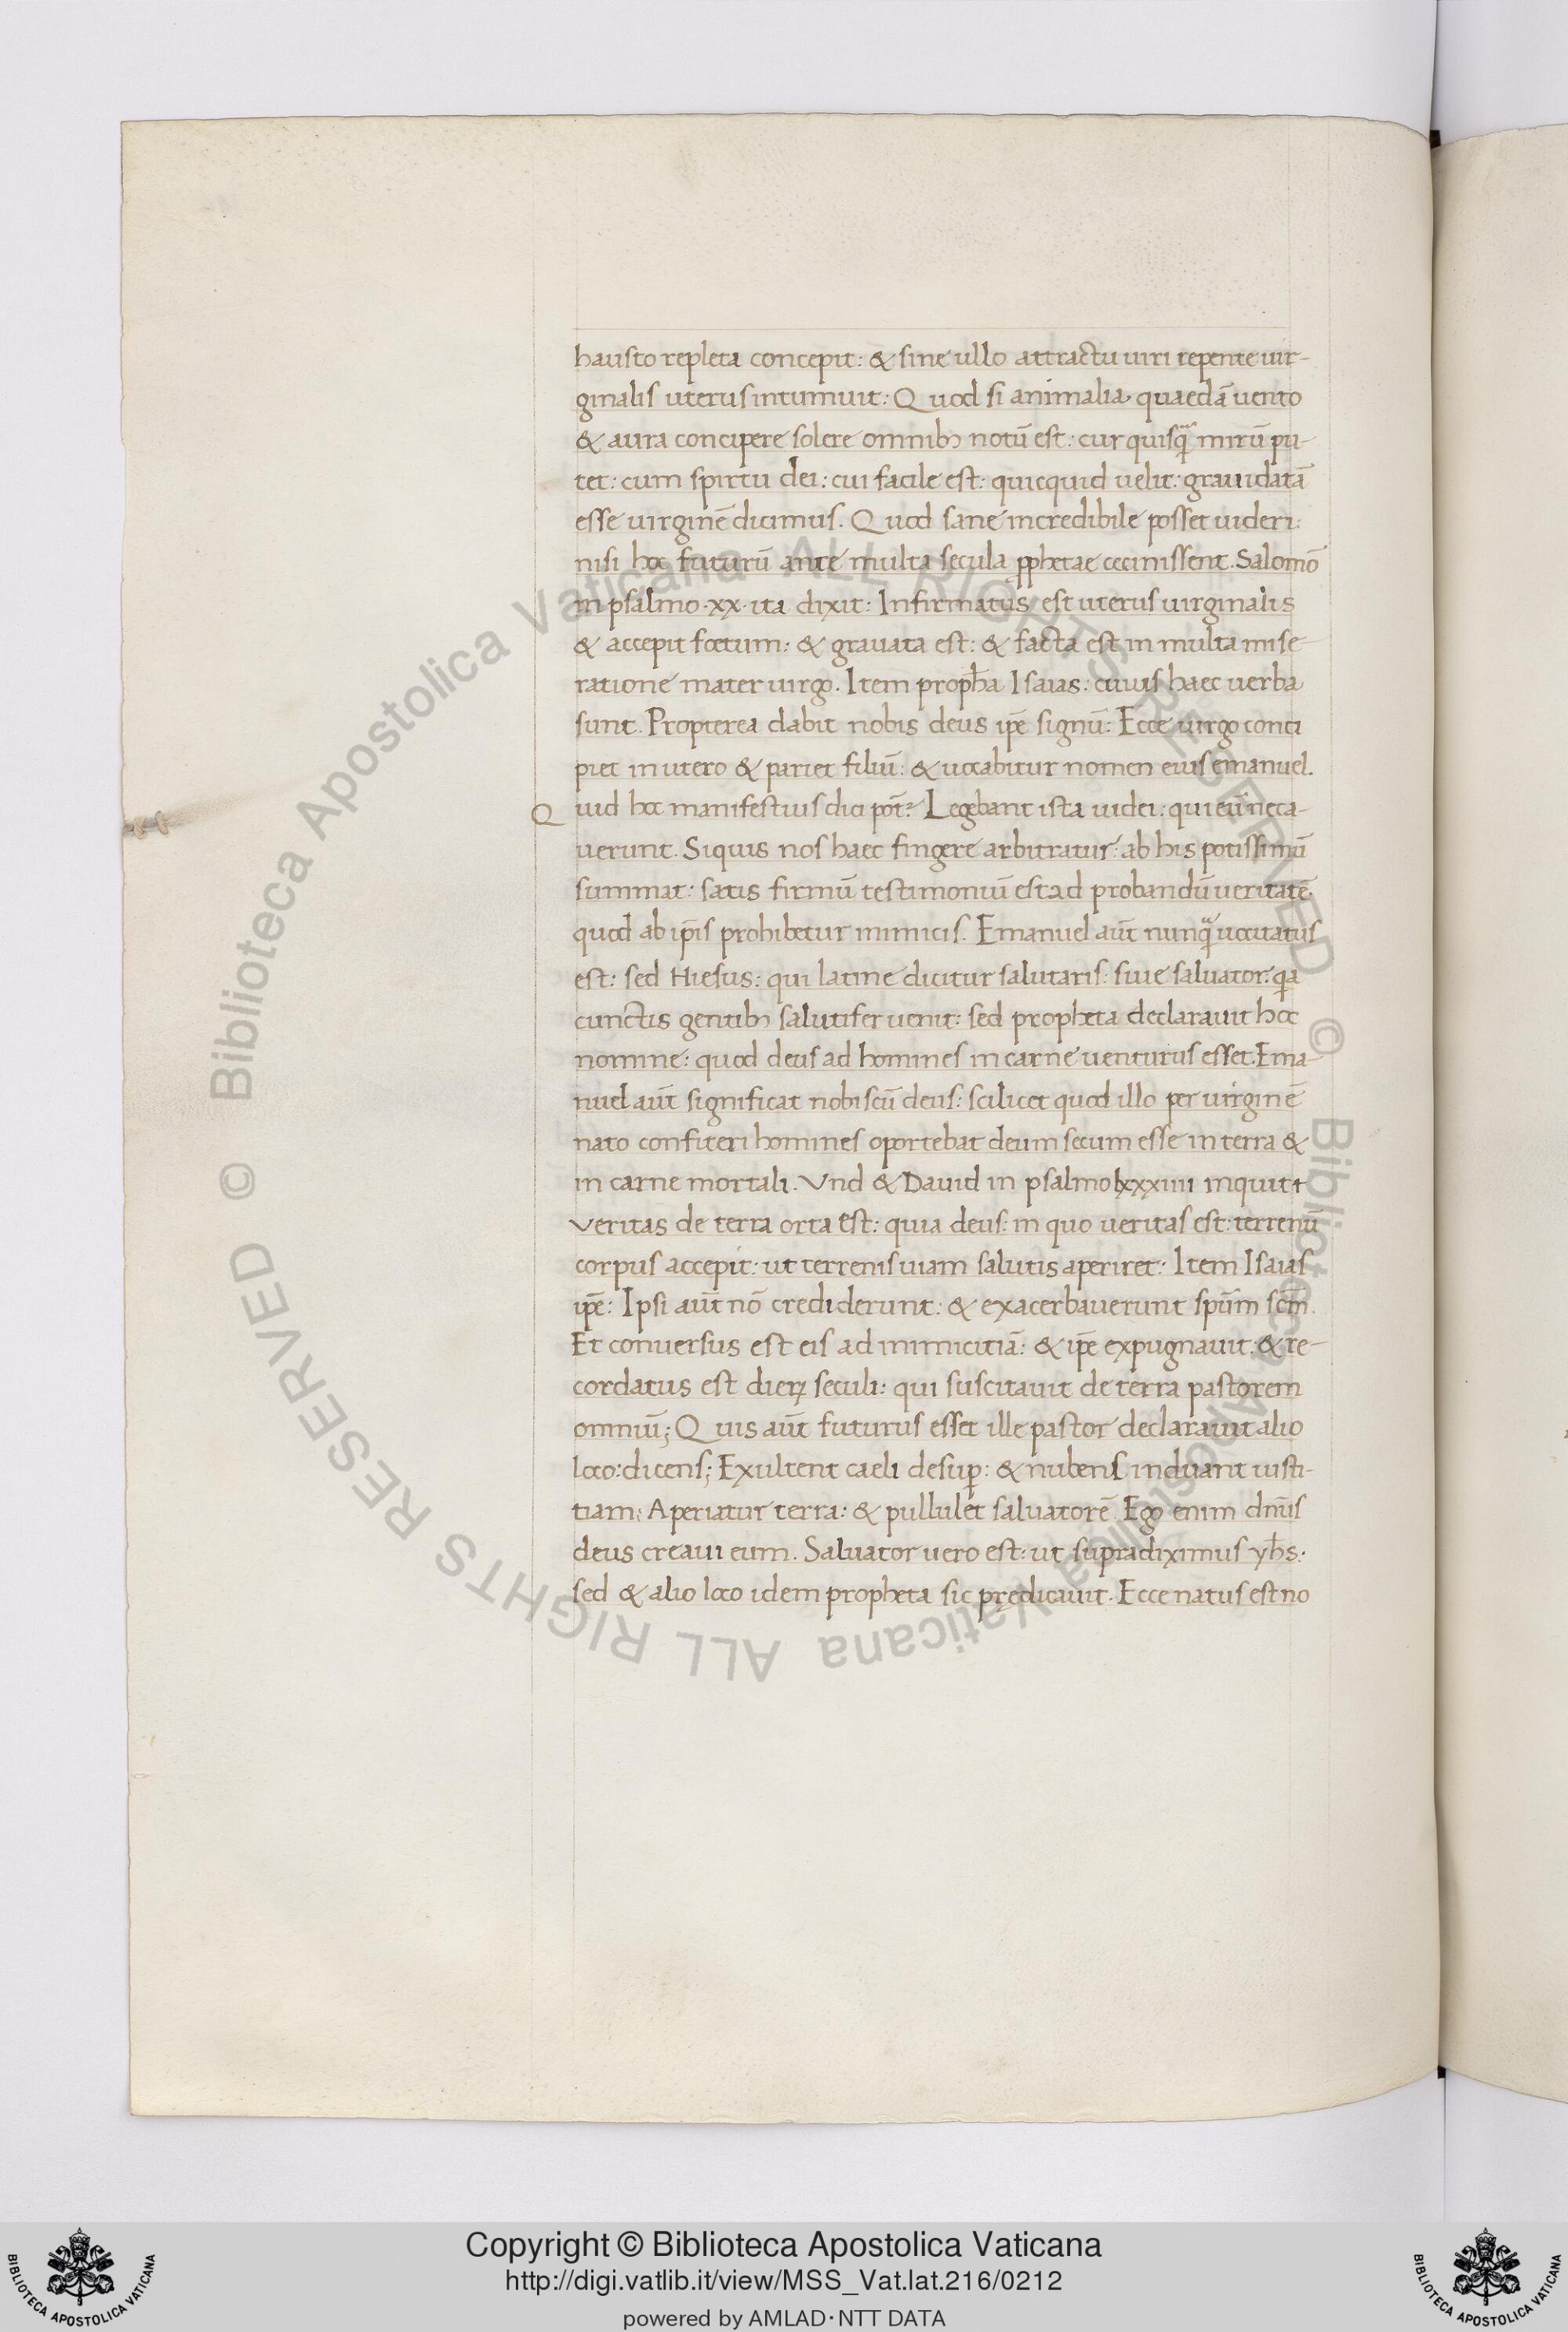 hausto repleta concepit: & sine ullo attractu uiri repente uir-
ginalis uterus intumuit: Quod si animalia quaedā uento
& aura concipere solere omnib; notū est: cur quisq̃ mirū pu-
tet: cum spiritu dei: cui facile est: quicquid uelit: grauidatā
esse uirginē dicimus. Quod sane incredibile posset uideri:
nisi hoc futurū ante multa secula ꝓphetae cecinissent. Salomō
in psalmo·xx·ita dixit: Infirmatus est uterus uirginalis
& accepit foetum: & grauata est: & facta est in multa mise-
ratione mater uirgo. Item propħa Isaias: cuius haec uerba
sunt. Propterea dabit nobis deus ip̄e signū: Ecce uirgo conci
piet in utero & pariet filiū: & uocabitur nomen eius emanuel.
Quid hoc manifestius dici pōt? Legebant ista iudei: qui eū neca-
uerunt. Siquis nos haec fingere arbitratur: ab his potissimū
summat: satis firmū testimoniū est ad probandū ueritatē
quod ab ip̄is prohibetur inimicis. Emanuel aūt nunq̃ uocitatus
est: sed Hiesus: qui latine dicitur salutaris: siue saluator: qa
cunctis gentib; salutifer uenit: sed propheta declarauit hoc
nomine: quod deus ad homines in carne uenturus esset. Ema-
nuel aūt significat nobiscū deus: scilicet quod illo per uirginē
nato confiteri homines oportebat deum secum esse in terra &
in carne mortali. Vnd & Dauid in psalmo lxxxiiii inquit
veritas de terra orta est: quia deus: in quo ueritas est: terrenū
corpus accepit: ut terrenis uiam salutis aperiret: Item Isaias
ip̄e: Ipsi aūt nō crediderunt: & exacerbauerunt sp̄um sc̄m.
Et conuersus est eis ad inimicitiā: & ip̄e expugnauit: & re-
cordatus est dieꝝ seculi: qui suscitauit de terra pastorem
omniū; Quis aūt futurus esset ille pastor declarauit alio
loco: dicens; Exultent caeli desuꝑ: & nubens induant iusti-
tiam: Aperiatur terra: & pullulet saluatorē. Ego enim dn̄us
deus creaui eum. Saluator uero est: ut supradiximus yħs:
sed & alio loco idem propheta sic prędicauit. Ecce natus est no
© Biblioteca Apostolica Vaticana ALL RIGHTS RESERVED © Biblioteca Apostolica Vaticana ALL RIGHTS RESERVED
Copyright © Biblioteca Apostolica Vaticana
http://digi.vatlib.it/view/MSS_Vat.lat.216/0212
powered by AMLAD·NTT DATA
BIBLIOTECA APOSTOLICA VATICANA
BIBLIOTECA APOSTOLICA VATICANA